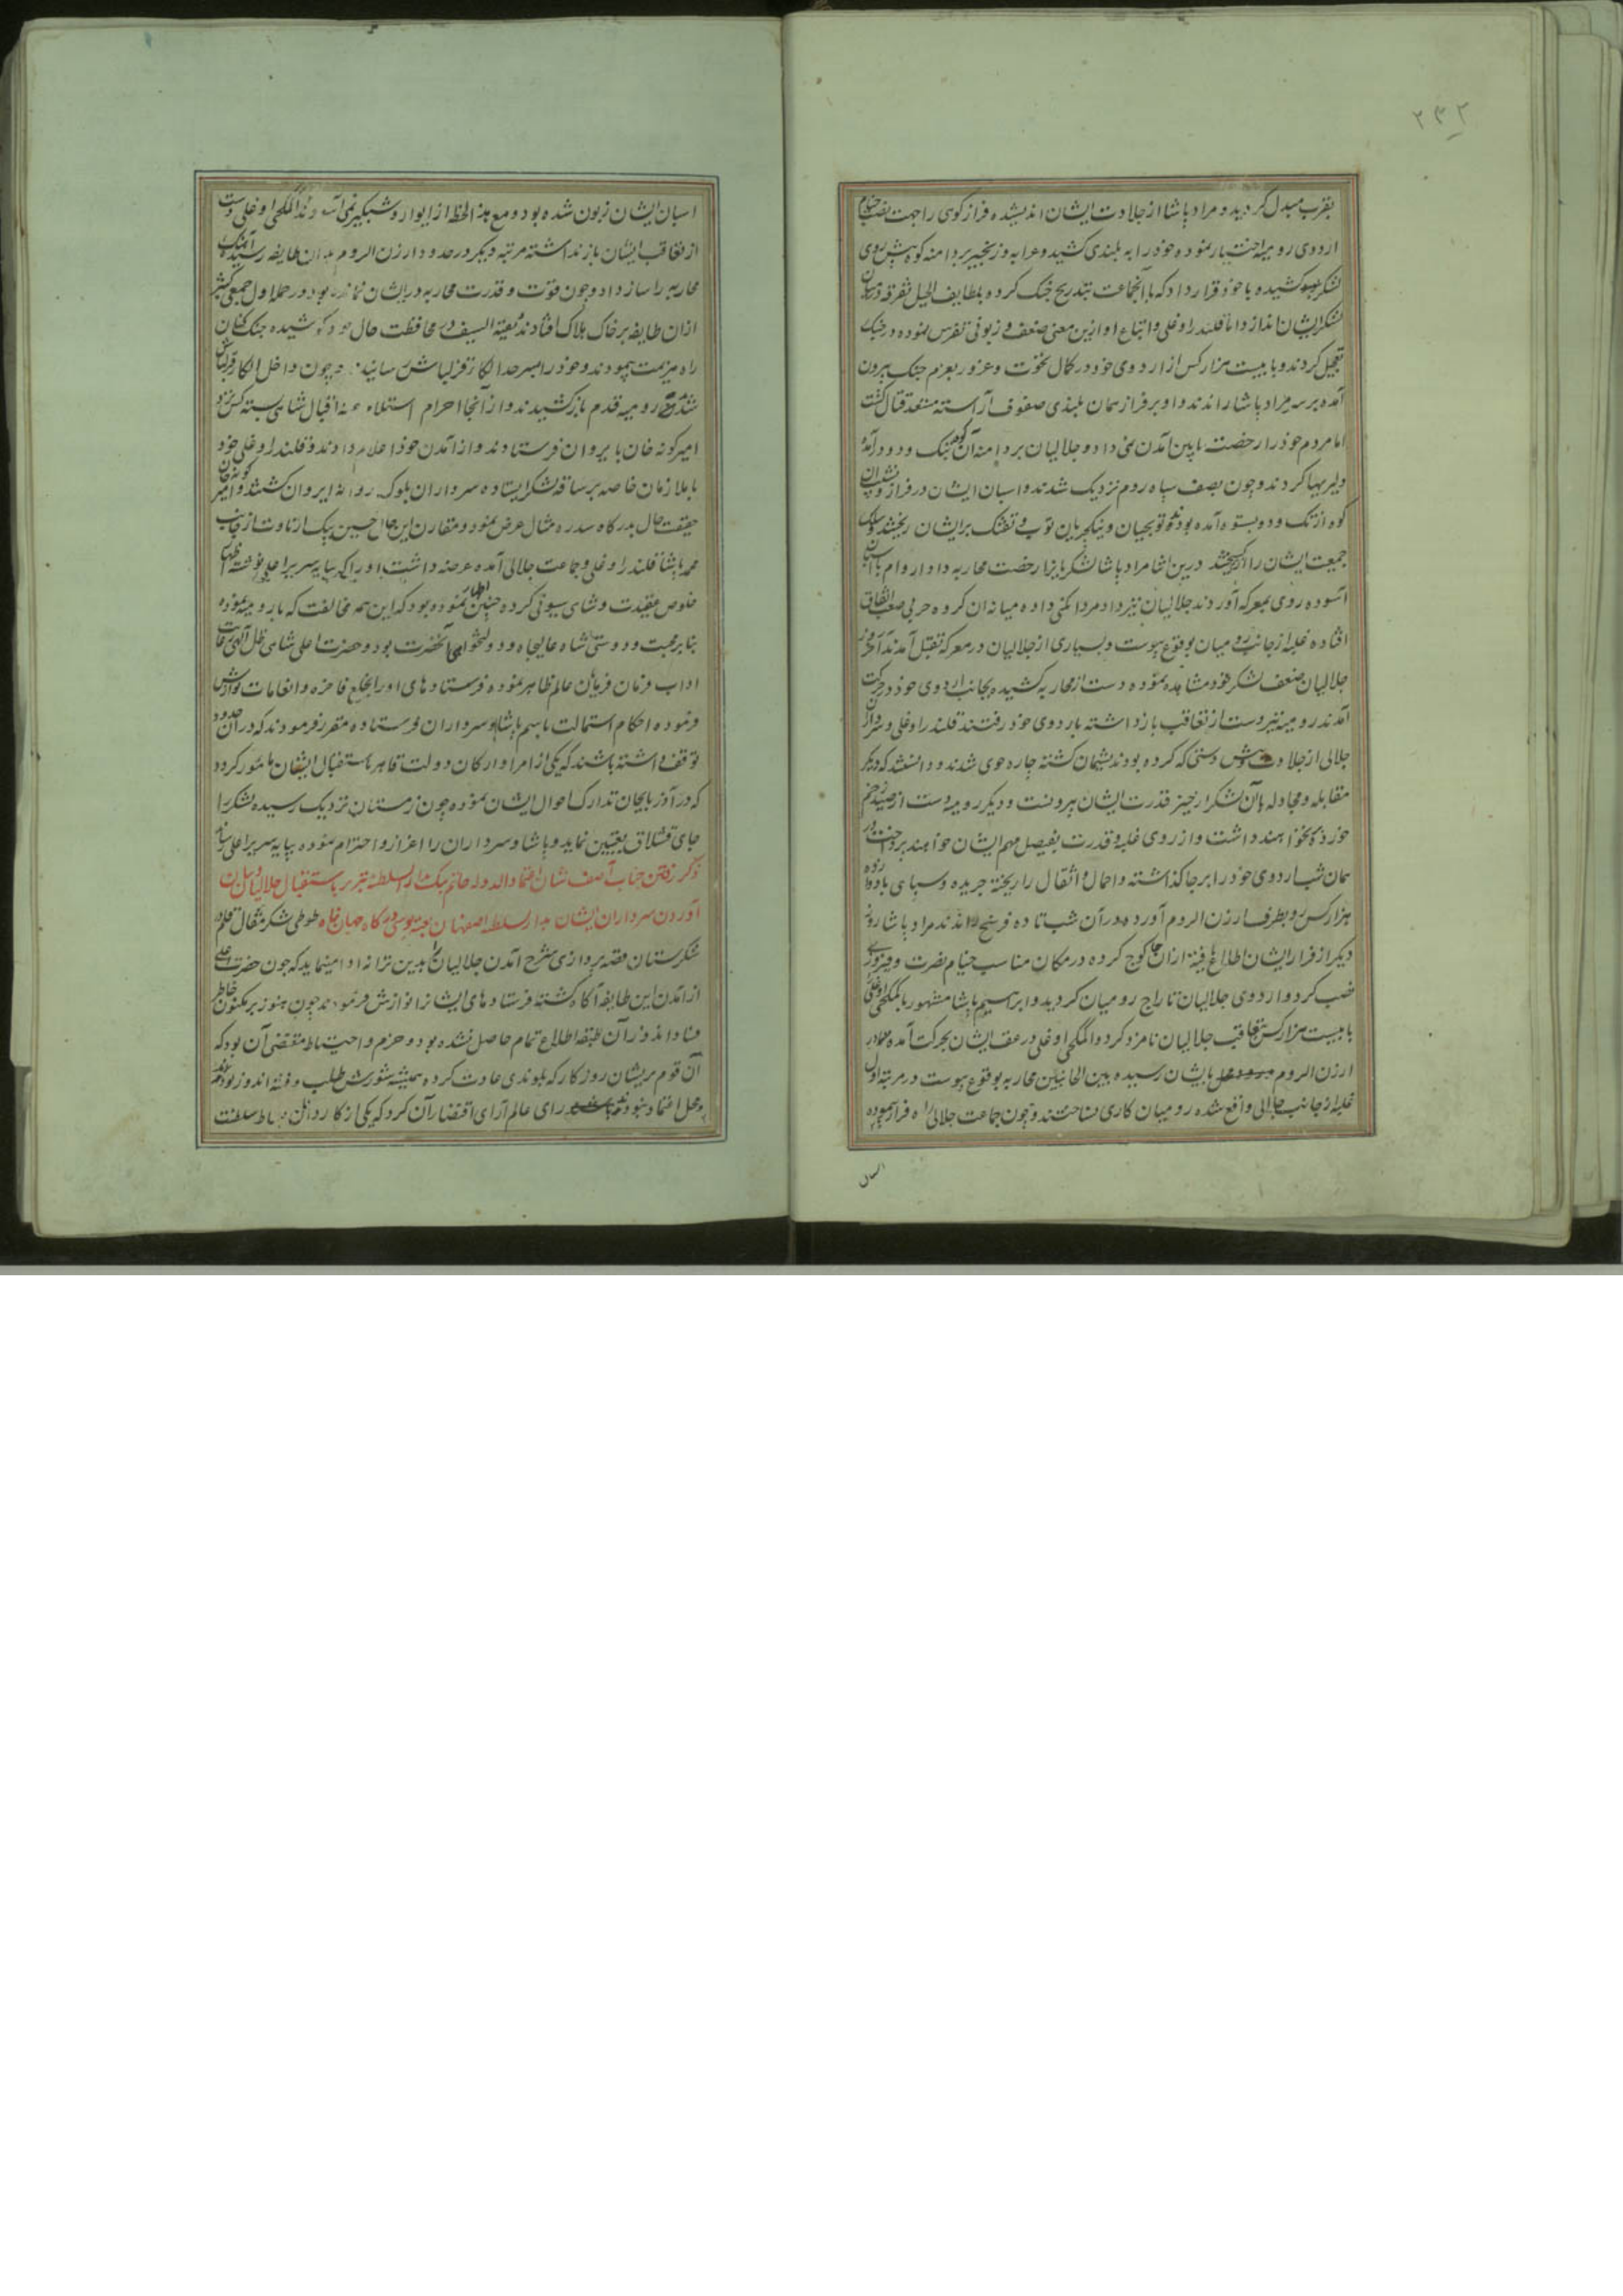 ۲۳۲
بقرب مبدل گردید و مراد پاشا از جلادت ایشان اندیشیده فراز کوی را جهت نصب خیام
اردوی رومیه اختیار نموده خود را به بلندی کشید و عرابه و زنجیر بر دامنه کوه پیش روی
لشکر کشیده با خود قرار داد که با آنجماعت بتدریج جنک کرده بلطایف الحیل تفرقه در میان
لشکر ایشان اندازد اما قلندر اوغلی و اتباع او ازین معنی ضعف و زبونی تفرس نموده در جنک
تعجیل کردند و با بیست هزار کس از اردوی خود در کمال نخوت و غرور بعزم جنک بیرون
آمده بر سر مراد پاشا راندند و او بر فراز همان بلندی صفوف آراسته مستعد قتال کشت
اما مردم خود را رخصت پایین آمدن نمی داد و جلالیان بر دامنه آن کوه بتک و دو در آمده
دلیریها کردند و چون بصف سپاه روم نزدیک شدند و اسبان ایشان در فراز و نشیب آن
کوه از تک و دو بستوه آمده بودند توپچیان و نیکچریان توپ و تفنک بر ایشان ریختند و سلک
جمعیت ایشان را از هم کسیختند درین اثنا مراد پاشا لشکریانرا رخصت محاربه داد اروام با اسبان
آسوده روی بمعرکه آوردند جلالیان نیز داد مردانکی داده میانه آن کروه حربی صعب اتفاق
افتاده غلبه از جانب رومیان بوقوع پیوست و بسیاری از جلالیان در معرکه بقتل آمدند آخر روز
جلالیان ضعف لشکر خود مشاهده نموده دست از محاربه کشیده بجانب اردوی خود در حرکت
آمدند رومیه نیز دست از تعاقب باز داشته باردوی خود رفتند قلندر اوغلی و سرداران
جلالی از جلادت و پیش دستی که کرده بودند پشیمان کشته چاره جوی شدند و دانستند که دیکر
مقابله و مجادله با آن لشکر از حیز قدرت ایشان بیرونست و دیکر رومیه دست از صید زخم
خورده نخواهند داشت و از روی غلبه و قدرت بفیصل مهم ایشان خواهند پرداخت در
همان شب اردوی خود را بر جا کذاشته و احمال و اثقال را ریخته جریده و سبای با دوازده
هزار کس رو بطرف ارزن الروم آورده در آن شب تا ده فرسخ راندند مراد پاشا روز
دیکر از فرار ایشان اطلاع یافته از آن جا کوچ کرده در مکان مناسب خیام نصرت و فیروزی
نصب کرد و اردوی جلالیان تاراج رومیان کردید و ابراهیم پاشا مشهور بالمکجی اوغلی
با بیست هزار کس بتعاقب جلالیان نامزد کرد و المکجی اوغلی در عقب ایشان بحرکت آمده در
ارزن الروم بایشان رسیده بین الجانبین محاربه بوقوع پیوست در مرتبه اول
غلبه از جانب جلالی واقع شده رومیان کاری نساختند و چون جماعت جلالی راه فرار پیموده
اسبان
اسبان ایشان زبون شده بود و مع هذا لحظه از ایوار و شبکیر نمی آسودند المکجی اوغلی دست
از تعاقب ایشان باز نداشته مرتبه دیکر در حدود ارزن الروم بدان طایفه رسیده آهنک
محاربه را ساز داد و چون قوت و قدرت محاربه در ایشان نمانده بود در حمله اول جمعی کثیر
از آن طایفه بر خاک هلاک افتادند بقیة السیف در محافظت حال خود کوشیده جنک کنان
راه هزیمت پیمودند و خود را بسرحد الکاء قزلباش رسانیدند چون داخل الکاء قزلباش
شدند رومیه قدم باز کشیدند و از آنجا احرام اقبال شاهی بسته کس نزد
امیر کونه خان بایروان فرستادند و از آمدن خود اعلام دادند و قلندر اوغلی خود
با ملازمان خاصه بر ساقه لشکر ایستاده سرداران بلوک روانه ایروان کشتند و امیر کونه خان
حقیقت حال بدرکاه سدره مثال عرض نمود و مقارن این حال حسین بیک از جانب
محمد پاشا قلندر اوغلی و جماعت جلالی آمده عرضه داشت او را که بپایه سریر اعلی نوشته اظهار
خلوص عقیدت و شاهی سیونی کرده چنین اظهار نموده بود که این همه مخالفت که با رومیه نموده
بنا بر محبت و دوستی شاه عالیجاه و دولتخواهی آنحضرت بود و حضرت اعلی شاهی ظل آلهی رعایت
اداب فرمان فرمایان عالم ظاهر نموده فرستادهای او را بخلع فاخره و انعامات نوازش
فرموده احکام استمالت باسم پاشا و سرداران فرستاده مقرر فرمودند که در آن حدود
توقف داشته باشند که یکی از امرا و ارکان دولت قاهره باستقبال ایشان مامور کردد
که در آذربایجان تدارک احوال ایشان نموده چون زمستان نزدیک رسیده لشکر را
جای قشلاق تعیین نماید و پاشا و سرداران را اعزاز و احترام نموده بپایه سریر اعلی رساند
ذکر رفتن جناب آصف شان اعتماد الدوله حاتم بیک بدار السلطنه تبریز باستقبال جلالیان و
آوردن سرداران ایشان بدار السلطنه اصفهان بعتبه بوسی درکاه جهان پناه طوطی شکر مقال قلم در
شکرستان قصه پردازی شرح آمدن جلالیان را بدین ترانه ادا مینماید که چون حضرت اعلی
از آمدن این طایفه آکاه کشته فرستادهای ایشانرا نوازش فرمودند چون هنوز بر مکنون خاطر
فساد اندوز آن طبقه اطلاع تمام حاصل نشده بود و حزم و احتیاط مقتضی آن بود که
آن قوم پریشان روزکار که بلوندی عادت کرده همیشه شورش طلب و فتنه اندوز بودند
محل اعتماد نبودند رای عالم آرای اقتضاء آن کرد که یکی از کاردانان بساط سلطنت